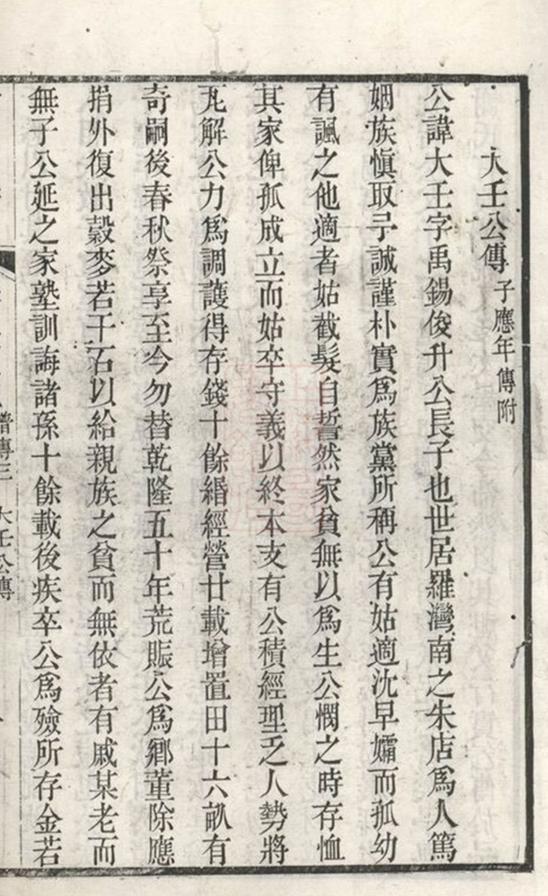 大壬公傳 子應年傳附
公諱大壬字禹錫俊升公長子也世居羅灣南之朱店爲人篤
姻族愼取予誠謹朴實爲族黨所稱公有姑適沈早孀而孤幼
有諷之他適者姑截髮自誓然家貧無以爲生公憫之時存恤
其家俾孤成立而姑卒守義以終本支有公積經理乏人勢將
瓦解公力爲調護得存錢十餘緡經營廿載增置田十六畝有
奇嗣後春秋祭享至今勿替乾隆五十年荒賑公爲鄉董除應
捐外復出穀麥若干石以給親族之貧而無依者有戚某老而
無子公延之家塾訓誨諸孫十餘載後疾卒公爲殮所存金若
譜傳三 大壬公傳